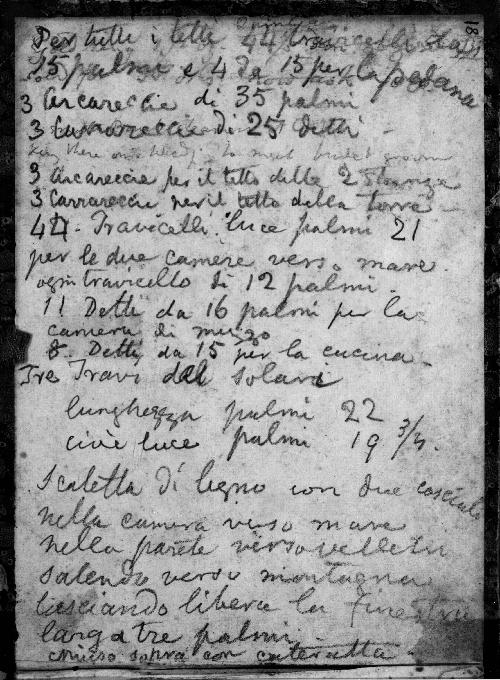 18
Per tutti i tetti 44 travicelli da
15 palmi e 4 da 15 per la pedana
3 Arcareccie di 35 palmi
3 Arcareccie di 25 detti -
to meet bridegroom
3 Arcareccie per il tetto delle 2 Stanze
3 Carrareccie per il tetto della torre
42 - Travicelli. luce palmi 21
per le due camere verso mare.
ogni travicello di 12 palmi.
11 Detti da 16 palmi per la
camera di mezzo
8. Detti da 15 per la cucina -
Tre Travi del Solari
lunghezza palmi 22
cioè luce palmi 19 3/4.
Scaletta di legno con due cosciali
nella camera verso mare
nella parete verso Velletri
salendo verso montagna
lasciando libera la finestra
larga tre palmi.
chiuso sopra con cateratta -